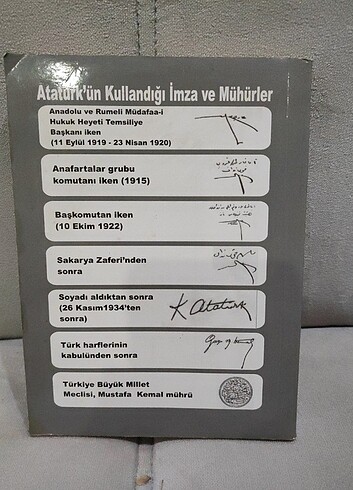 Atatürk'ün Kullandığı İmza ve Mühürler
Anadolu ve Rumeli Müdafaa-i
Hukuk Heyeti Temsiliye
Başkanı iken
(11 Eylül 1919 - 23 Nisan 1920)
Anafartalar grubu
komutanı iken (1915)
Başkomutan iken
(10 Ekim 1922)
Sakarya Zaferi'nden
sonra
Soyadı aldıktan sonra
(26 Kasım1934'ten
sonra)
K. Atatürk
Türk harflerinin
kabulünden sonra
Türkiye Büyük Millet
Meclisi, Mustafa Kemal mührü